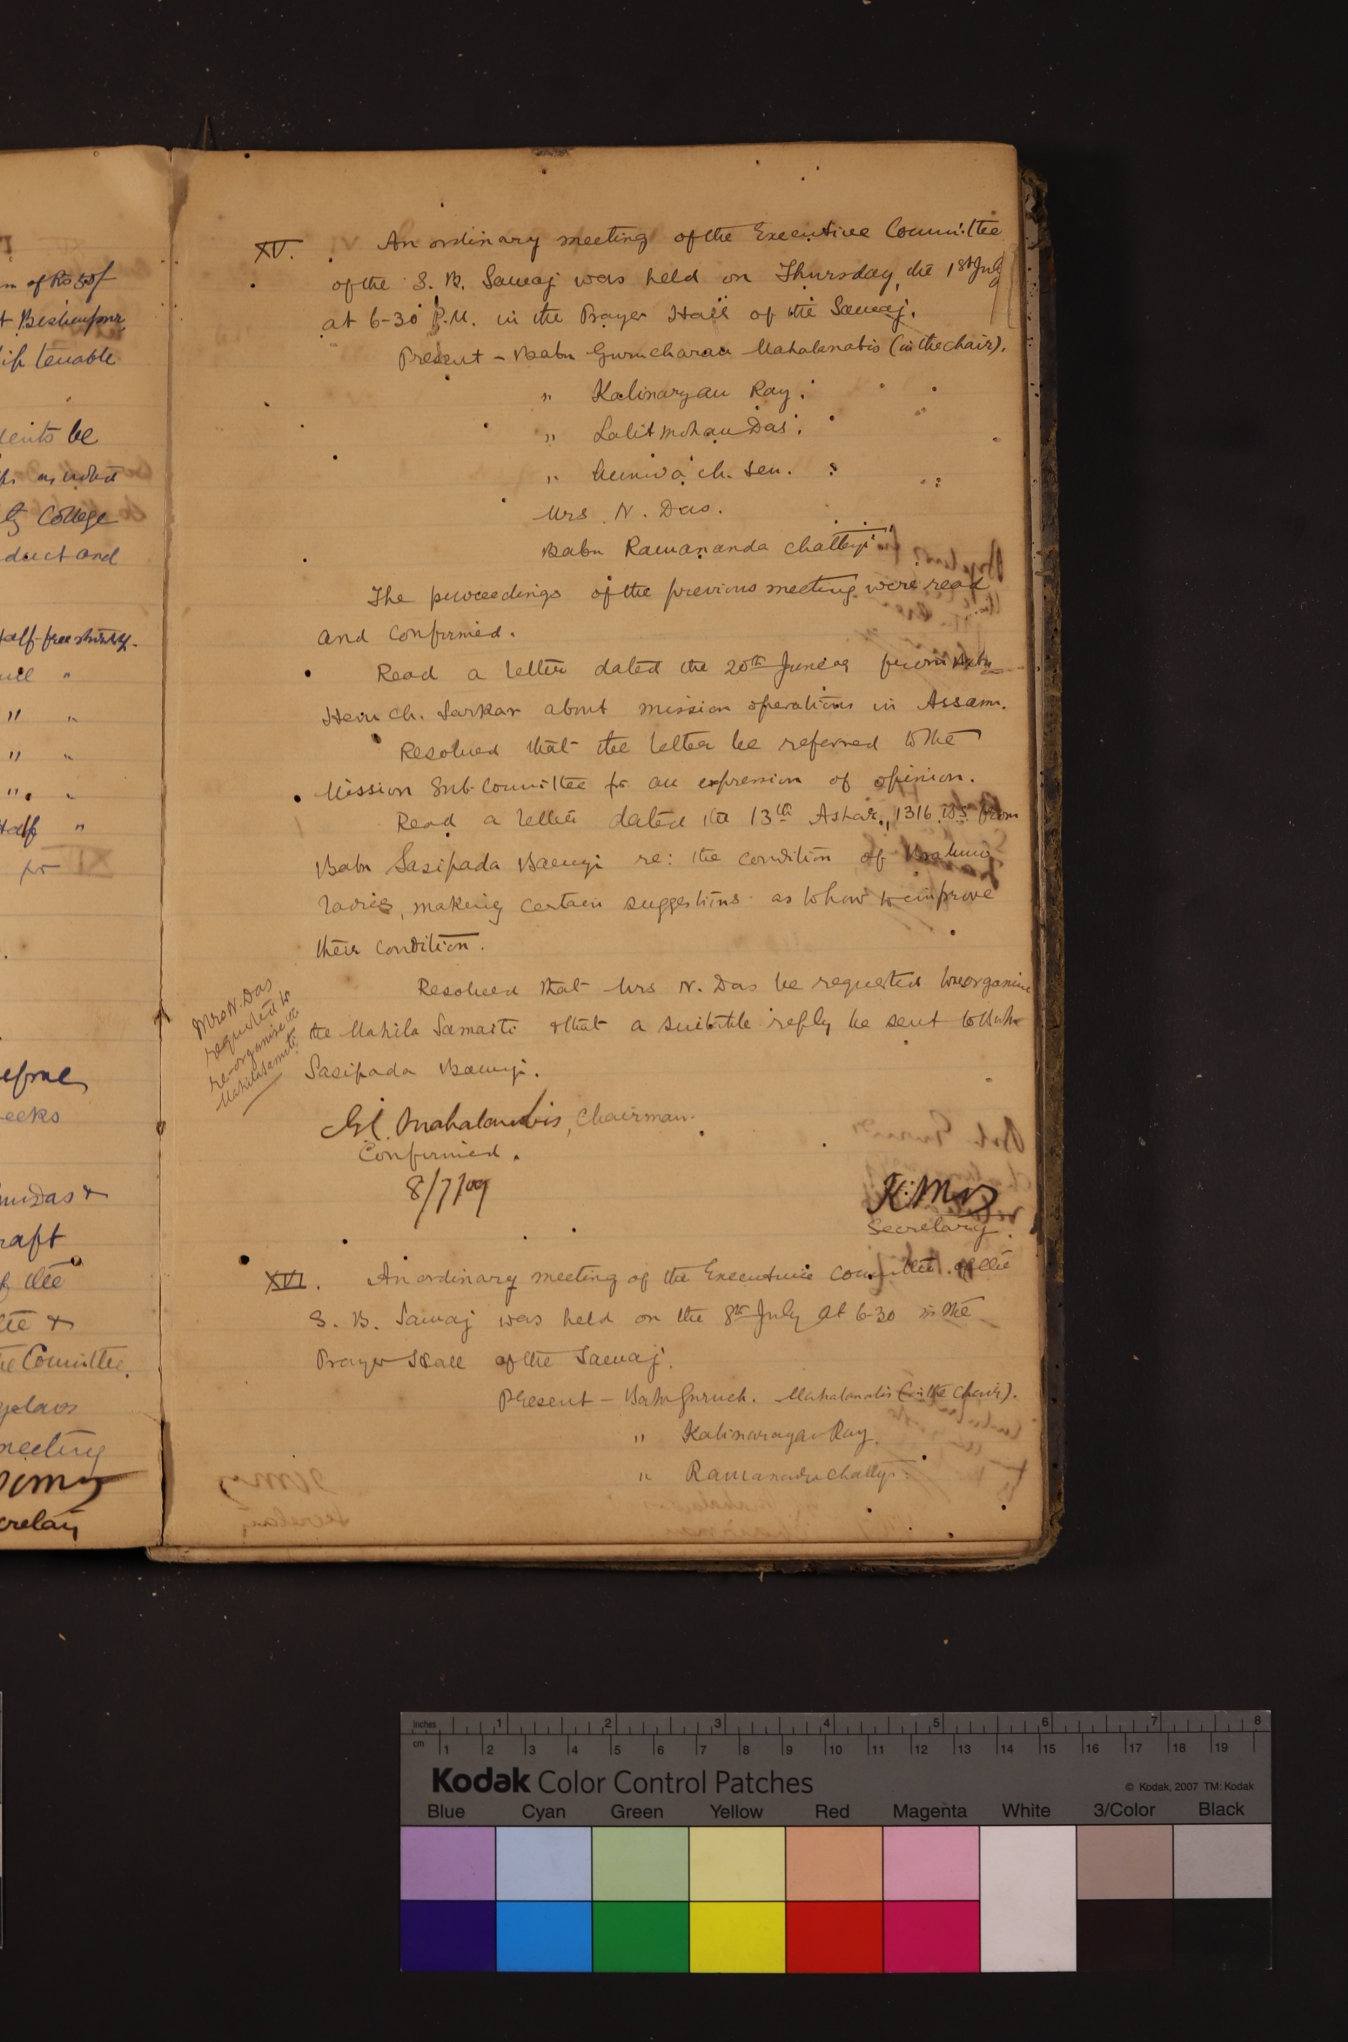 m of Rs 50/-
t Bishenpur
ip tenable
dents be
as noted
City College
duct and
Half-free
" "
" "
" "
" "
Half "
for
weeks
Das &
raft
of the
tee &
the Committee.
meeting
Secretary
XV. An ordinary meeting of the Executive Committee
of the S. B. Samaj was held on Thursday, the 1st July
at 6-30 P.M. in the Prayer Hall of the Samaj.
Present – Babu Gurucharan Mahalanabis (in the chair).
" Kalinaryan Ray.
" Lalit Mohan Das.
" ch. Sen.
Mrs. N. Das.
Babu Ramananda Chatterji
The proceedings of the previous meeting were read
and confirmed.
Read a letter dated the 20th June 09 from Babu
Hem Ch. Sarkar about mission operations in Assam.
Resolved that the letter be referred to the
Mission Sub-Committee for an expression of opinion.
Read a letter dated the 13th Ashar, 1316 B.S. from
Babu Sasipada Banerji re: the condition of Brahmo
ladies, making certain suggestions as to how to improve
their condition.
Resolved that Mrs N. Das be requested to reorganise
the Mahila Samaiti & that a suitable reply be sent to Babu
Sasipada Banerji.
Mrs N. Das
requested to
re-organise the
Mahila Samiti
G.C. Mahalanobis, Chairman.
Confirmed.
8/7/09
Secretary.
XVI. An ordinary meeting of the Executive Committee of the
S. B. Samaj was held on the 8th July at 6-30 in the
Prayer Hall of the Samaj.
Present – Babu Guruch. Mahalanabis (in the chair).
" Kalinarayan Ray.
" Ramananda Chatterji.
inches 1 2 3 4 5 6 7 8
cm 1 2 3 4 5 6 7 8 9 10 11 12 13 14 15 16 17 18 19
Kodak Color Control Patches © Kodak, 2007 TM: Kodak
Blue Cyan Green Yellow Red Magenta White 3/Color Black